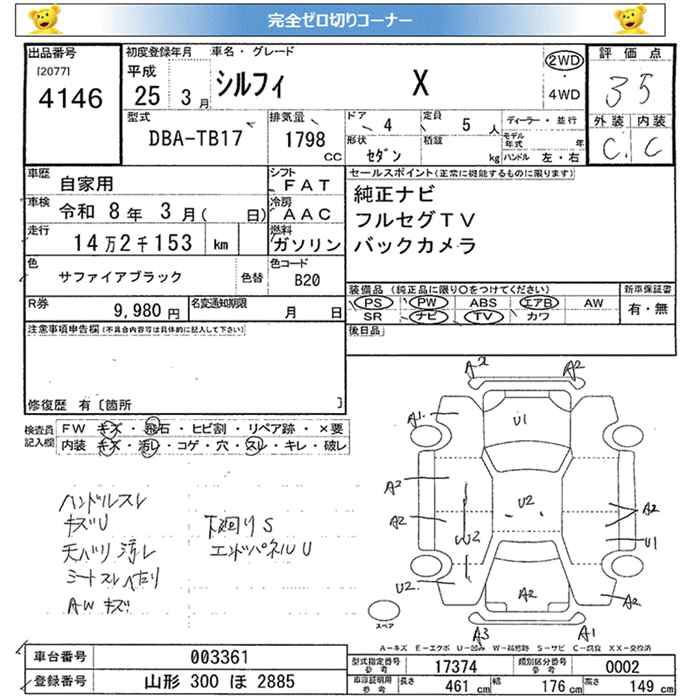 完全ゼロ切りコーナー
出品番号
[2077]
4146
初度登録年月
平成
25 3月
車名・グレード
シルフィ X
2WD
・
4WD
評価点
35
外装 内装
C C
型式
DBA-TB17
排気量
1798
CC
ドア
4
定員
5 人
形状
セダン
積載
kg
ディーラー・並行
モデル年式 年
ハンドル 左・右
車歴
自家用
シフト
FAT
車検
令和 8年 3月( 日)
冷房
AAC
走行
14万2千153 km
燃料
ガソリン
色
サファイアブラック
色替
色コード
B20
R券
9,980円
名変通知期限
月 日
セールスポイント(正常に機能するものに限ります)
純正ナビ
フルセグTV
バックカメラ
装備品(純正品に限り〇をつけてください)
PS PW ABS エアB AW
SR ナビ TV カワ
新車保証書
有・無
後日品
注意事項申告欄(不具合内容は具体的に記入して下さい)
修復歴 有〔箇所 〕
検査員記入欄
FW キズ・飛石・ヒビ割・リペア跡・×要
内装 キズ・汚れ・コゲ・穴・スレ・キレ・破レ
ハンドルスレ
キズU
天バリ汚レ
シートスレへたり
AWキズ
下廻りS
エンドパネルU
A2 A2
A1
U1
A2
A2
U2
W2
A2
U1
U2
A2
A2
A3 A1
スペア
A-キズ E-エクボ U-凹み W-補修跡 S-サビ C-腐食 XX-交換済
車台番号
003361
登録番号
山形 300 ほ 2885
型式指定番号
参考
17374
類別区分番号
参考
0002
車庫証明用
参考
長さ
461 cm
幅
176 cm
高さ
149 cm